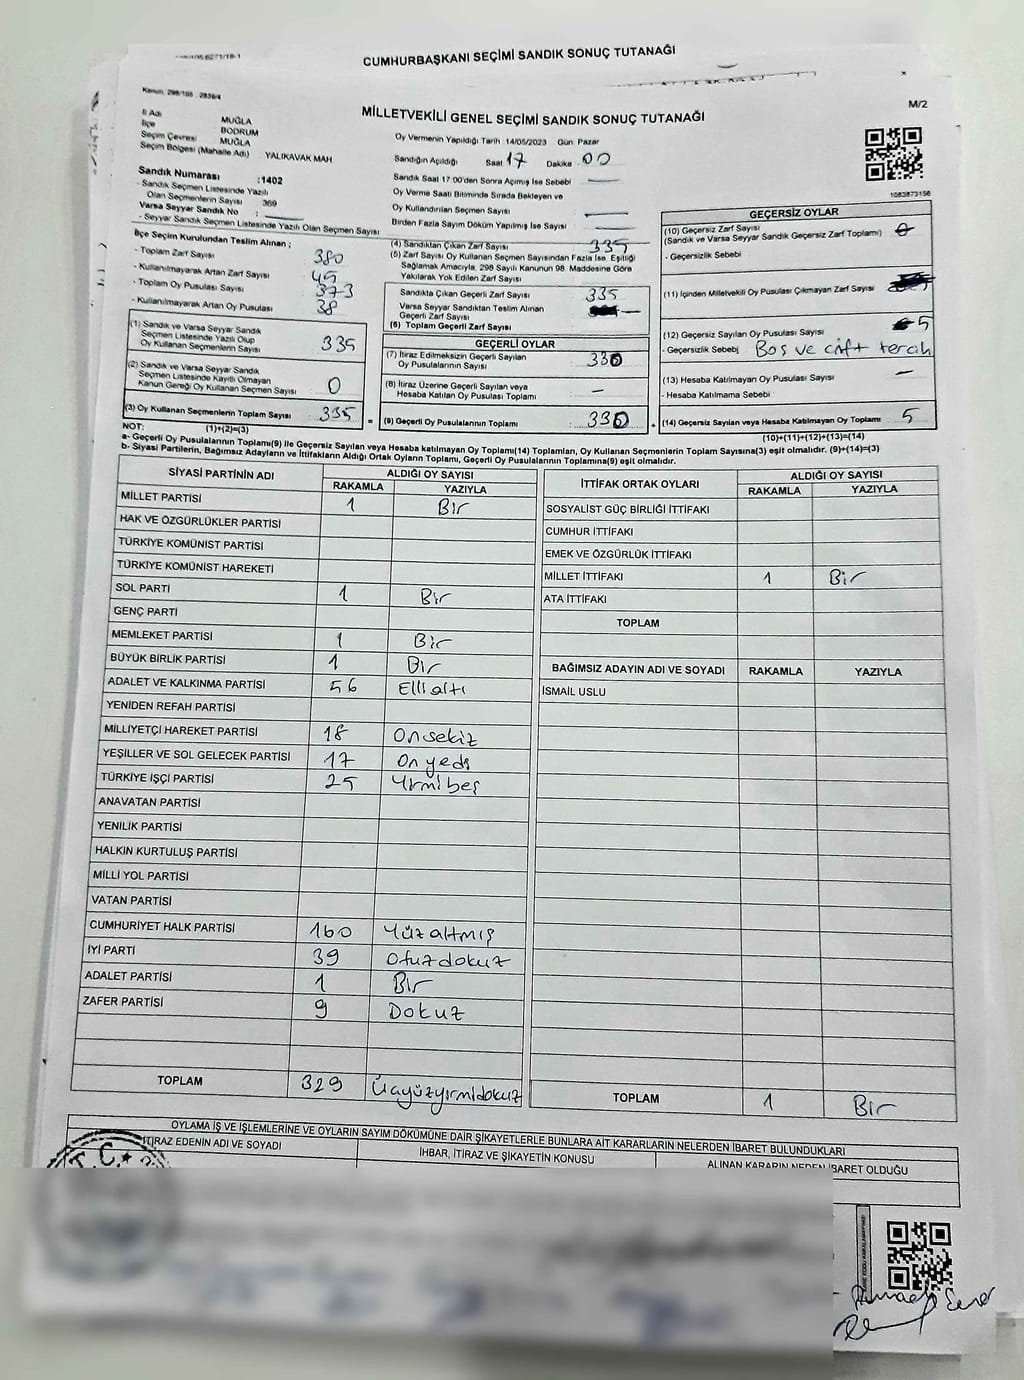 CUMHURBAŞKANI SEÇİMİ SANDIK SONUÇ TUTANAĞI
MİLLETVEKİLİ GENEL SEÇİMİ SANDIK SONUÇ TUTANAĞI
M/2
İl Adı MUĞLA
İlçe BODRUM
Seçim Çevresi MUĞLA
Seçim Bölgesi (Mahalle Adı) YALIKAVAK MAH
Sandık Numarası :1402
- Sandık Seçmen Listesinde Yazılı
Olan Seçmenlerin Sayısı 369
Varsa Seyyar Sandık No :
- Seyyar Sandık Seçmen Listesinde Yazılı Olan Seçmen Sayısı
Oy Vermenin Yapıldığı Tarih :14/05/2023 Gün Pazar
Sandığın Açıldığı Saat 17 Dakika 00
Sandık Saat 17:00'den Sonra Açılmış İse Sebebi
Oy Verme Saati Bitiminde Sırada Bekleyen ve
Oy Kullandırılan Seçmen Sayısı
Birden Fazla Sayım Döküm Yapılmış İse Sayısı
1083873156
İlçe Seçim Kurulundan Teslim Alınan ;
- Toplam Zarf Sayısı 380
- Kullanılmayarak Artan Zarf Sayısı 45
- Toplam Oy Pusulası Sayısı 373
- Kullanılmayarak Artan Oy Pusulası 38
(1) Sandık ve Varsa Seyyar Sandık
Seçmen Listesinde Yazılı Olup
Oy Kullanan Seçmenlerin Sayısı 335
(2) Sandık ve Varsa Seyyar Sandık
Seçmen Listesinde Kayıtlı Olmayan
Kanun Gereği Oy Kullanan Seçmen Sayısı 0
(3) Oy Kullanan Seçmenlerin Toplam Sayısı 335
(1)+(2)=(3)
(4) Sandıktan Çıkan Zarf Sayısı 335
(5) Zarf Sayısı Oy Kullanan Seçmen Sayısından Fazla İse, Eşitliği
Sağlamak Amacıyla, 298 Sayılı Kanunun 98. Maddesine Göre
Yakılarak Yok Edilen Zarf Sayısı
Sandıkta Çıkan Geçerli Zarf Sayısı 335
Varsa Seyyar Sandıktan Teslim Alınan
Geçerli Zarf Sayısı
(6) Toplam Geçerli Zarf Sayısı
GEÇERLİ OYLAR
(7) İtiraz Edilmeksizin Geçerli Sayılan
Oy Pusulalarının Sayısı 330
(8) İtiraz Üzerine Geçerli Sayılan veya
Hesaba Katılan Oy Pusulası Toplamı –
= (9) Geçerli Oy Pusulalarının Toplamı 330
GEÇERSİZ OYLAR
(10) Geçersiz Zarf Sayısı
(Sandık ve Varsa Seyyar Sandık Geçersiz Zarf Toplamı)
- Geçersizlik Sebebi
(11) İçinden Milletvekili Oy Pusulası Çıkmayan Zarf Sayısı
(12) Geçersiz Sayılan Oy Pusulası Sayısı 5
- Geçersizlik Sebebi Boş ve çift tercih
(13) Hesaba Katılmayan Oy Pusulası Sayısı –
- Hesaba Katılmama Sebebi
+ (14) Geçersiz Sayılan veya Hesaba Katılmayan Oy Toplamı 5
(10)+(11)+(12)+(13)=(14)
NOT:
a- Geçerli Oy Pusulalarının Toplamı(9) ile Geçersiz Sayılan veya Hesaba katılmayan Oy Toplamı(14) Toplamları, Oy Kullanan Seçmenlerin Toplam Sayısına(3) eşit olmalıdır. (9)+(14)=(3)
b- Siyasi Partilerin, Bağımsız Adayların ve İttifakların Aldığı Ortak Oyların Toplamı, Geçerli Oy Pusulalarının Toplamına(9) eşit olmalıdır.
SİYASİ PARTİNİN ADI ALDIĞI OY SAYISI
RAKAMLA YAZIYLA
MİLLET PARTİSİ 1 Bir
HAK VE ÖZGÜRLÜKLER PARTİSİ
TÜRKİYE KOMÜNİST PARTİSİ
TÜRKİYE KOMÜNİST HAREKETİ
SOL PARTİ 1 Bir
GENÇ PARTİ
MEMLEKET PARTİSİ 1 Bir
BÜYÜK BİRLİK PARTİSİ 1 Bir
ADALET VE KALKINMA PARTİSİ 56 Elli altı
YENİDEN REFAH PARTİSİ
MİLLİYETÇİ HAREKET PARTİSİ 18 Onsekiz
YEŞİLLER VE SOL GELECEK PARTİSİ 17 On yedi
TÜRKİYE İŞÇİ PARTİSİ 25 Yirmi beş
ANAVATAN PARTİSİ
YENİLİK PARTİSİ
HALKIN KURTULUŞ PARTİSİ
MİLLİ YOL PARTİSİ
VATAN PARTİSİ
CUMHURİYET HALK PARTİSİ 160 Yüz altmış
İYİ PARTİ 39 Otuzdokuz
ADALET PARTİSİ 1 Bir
ZAFER PARTİSİ 9 Dokuz
TOPLAM 329 Üçyüzyirmidokuz
İTTİFAK ORTAK OYLARI ALDIĞI OY SAYISI
RAKAMLA YAZIYLA
SOSYALİST GÜÇ BİRLİĞİ İTTİFAKI
CUMHUR İTTİFAKI
EMEK VE ÖZGÜRLÜK İTTİFAKI
MİLLET İTTİFAKI 1 Bir
ATA İTTİFAKI
TOPLAM
BAĞIMSIZ ADAYIN ADI VE SOYADI RAKAMLA YAZIYLA
İSMAİL USLU
TOPLAM 1 Bir
OYLAMA İŞ VE İŞLEMLERİNE VE OYLARIN SAYIM DÖKÜMÜNE DAİR ŞİKAYETLERLE BUNLARA AİT KARARLARIN NELERDEN İBARET BULUNDUKLARI
İTİRAZ EDENİN ADI VE SOYADI
İHBAR, İTİRAZ VE ŞİKAYETİN KONUSU
ALINAN KARARIN NEDEN İBARET OLDUĞU
T.C.